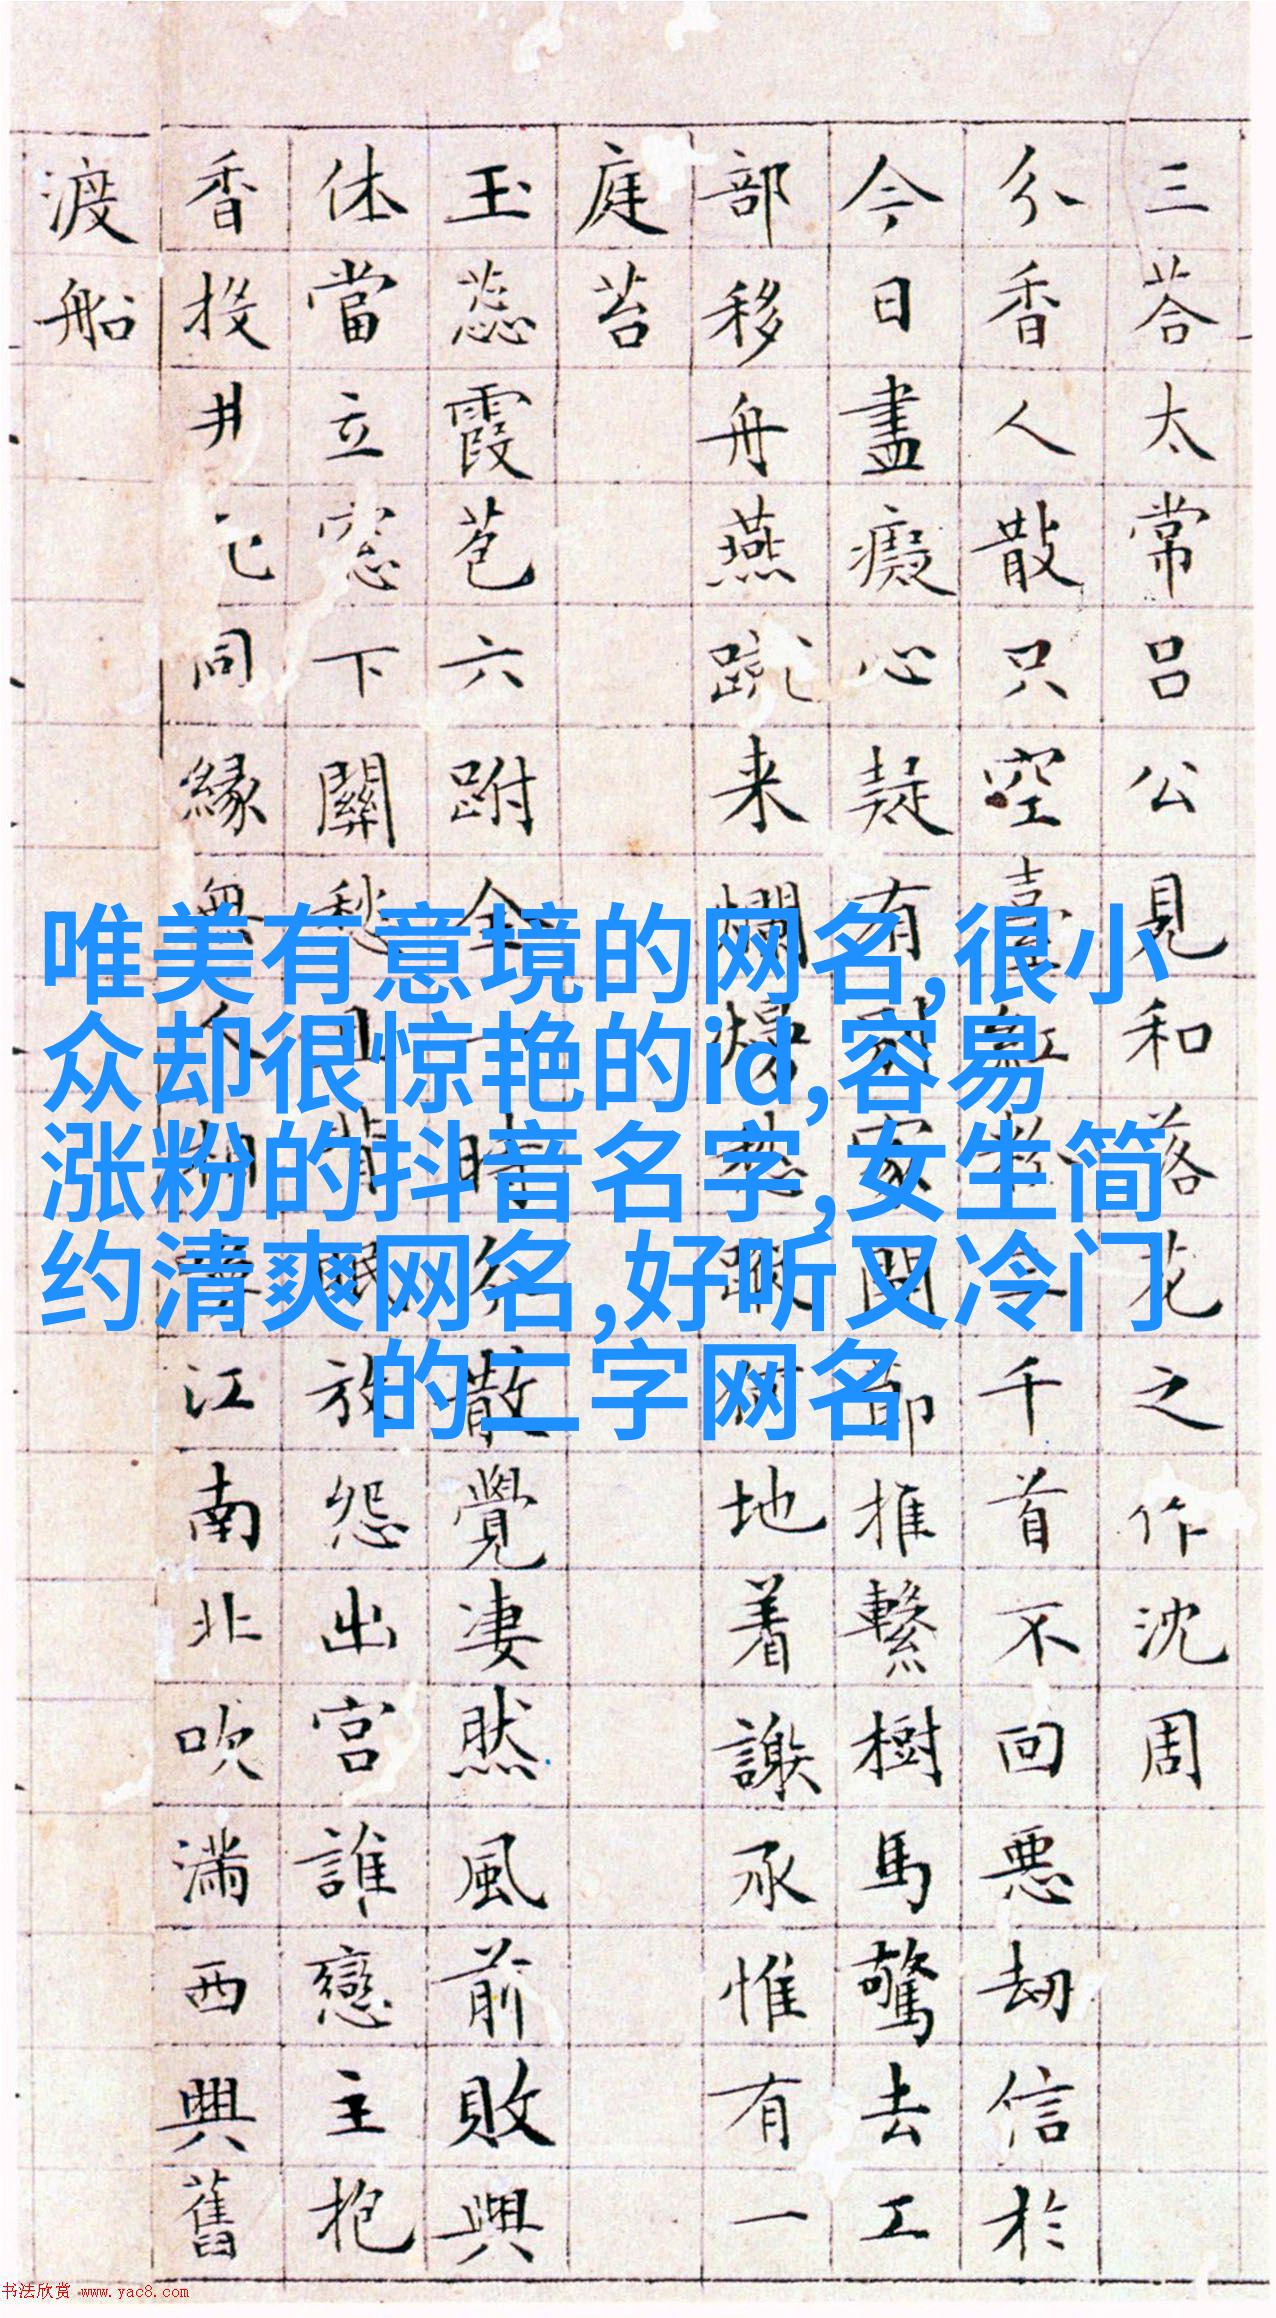 唯美有意境的网名,很小
众却很惊艳的id,容易
涨粉的抖音名字,女生简
约清爽网名,好听又冷门
的二字网名
三荅太常吕公見和落花之作沈周
分香人散只空臺紅千首不回惡劫信於
今日盡癡心疑有別家開節推繫樹馬驚去工
部移舟燕蹴来爛熳愁蹤何地着謝承惟有一
庭苔
玉蕊霞苞六跗全一時分散覺凄然風前敗興
休當立窓下關愁且背眠放怨出宫誰戀主抱
香投井已同縁無人相江南北吹滿西興舊
渡船
书法欣赏 www.yac8.com